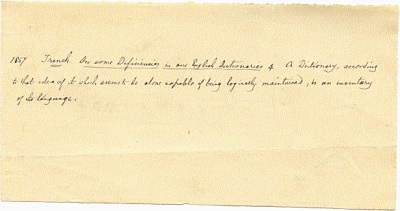 1857 Trench On some Deficiencies in our English Dictionaries 4. A Dictionary, according
to that idea of it which seems to be alone capable of being logically maintained, is an inventory
of the language.